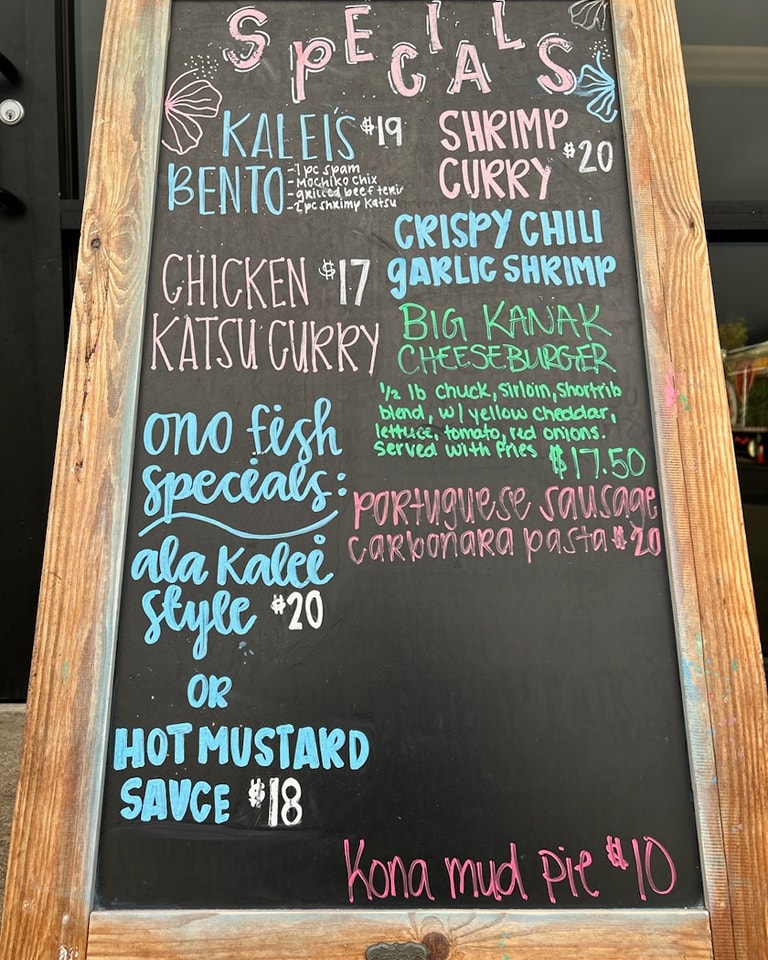 SPECIALS
KALEI'S $19
BENTO
- 1 pc spam
- Mochiko Chix
- grilled beef teri
- 2 pc shrimp Katsu
CHICKEN $17
KATSU CURRY
ono fish
specials:
ala Kalei
style $20
OR
HOT MUSTARD
SAUCE $18
SHRIMP
CURRY $20
CRISPY CHILI
GARLIC SHRIMP
BIG KANAK
CHEESEBURGER
1/2 lb chuck, sirloin, shortrib
blend, w/ yellow cheddar,
lettuce, tomato, red onions.
Served with fries $17.50
portuguese sausage
carbonara pasta $20
Kona mud pie $10